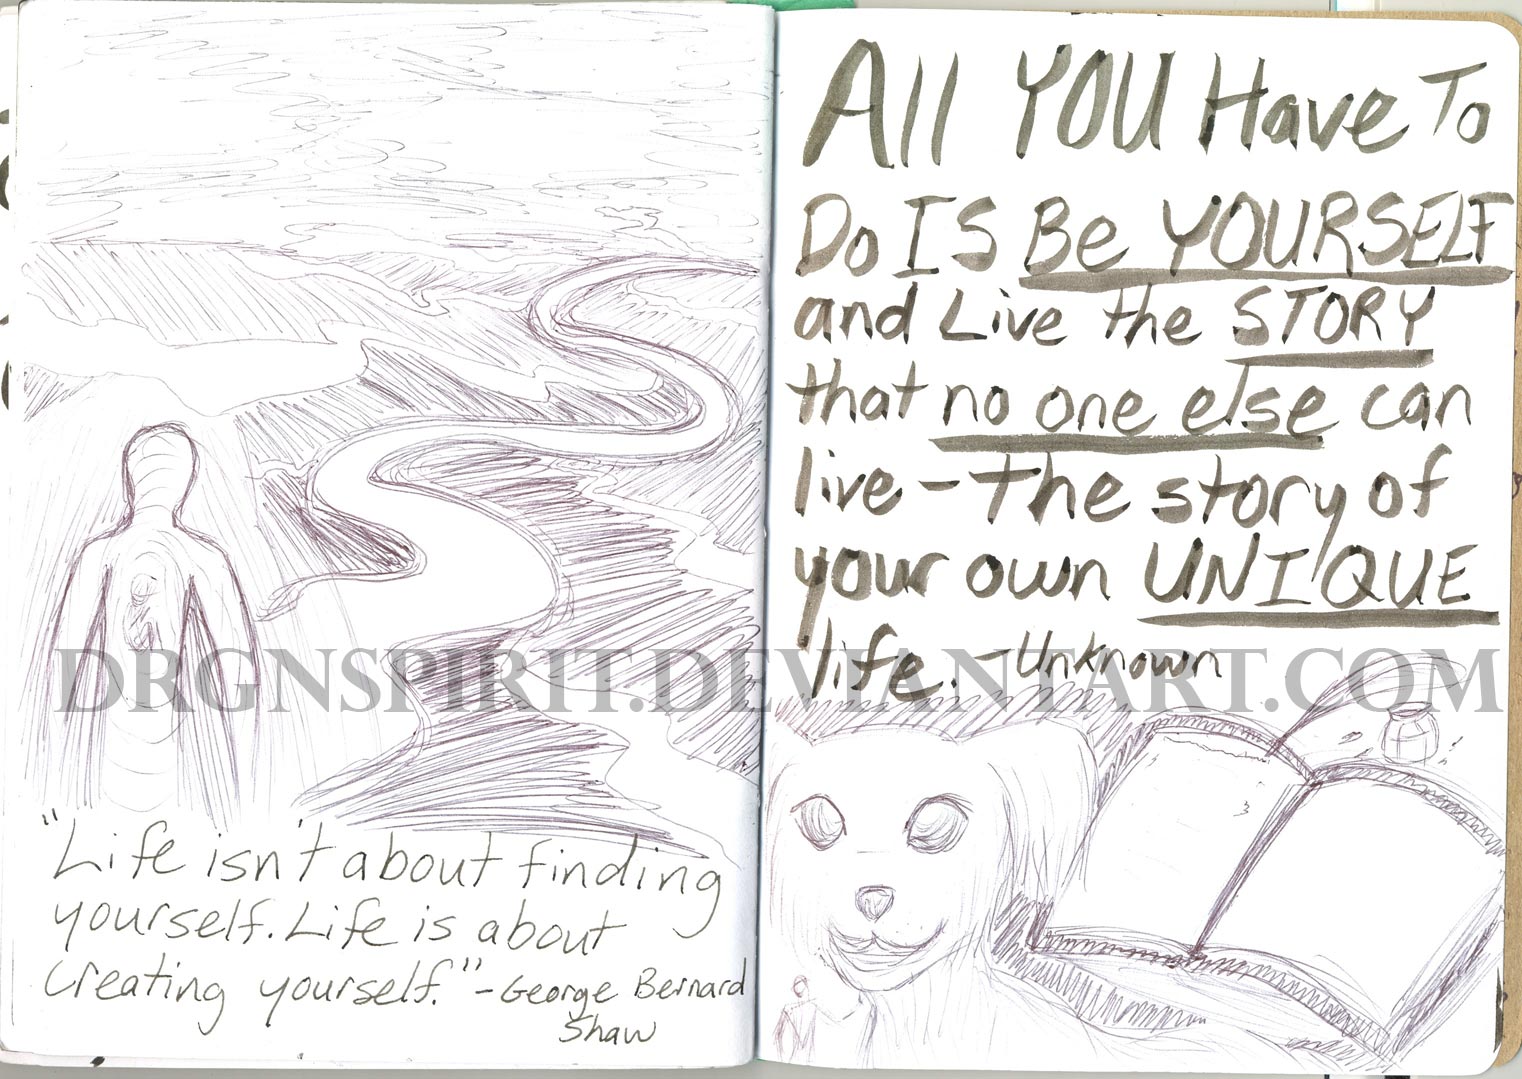 "Life isn't about finding
yourself. Life is about
creating yourself." - George Bernard
Shaw
All YOU Have To
Do IS Be YOURSELF
and Live the STORY
that no one else can
live - the story of
your own UNIQUE
life. - Unknown
DRGNSPIRIT.DEVIANTART.COM